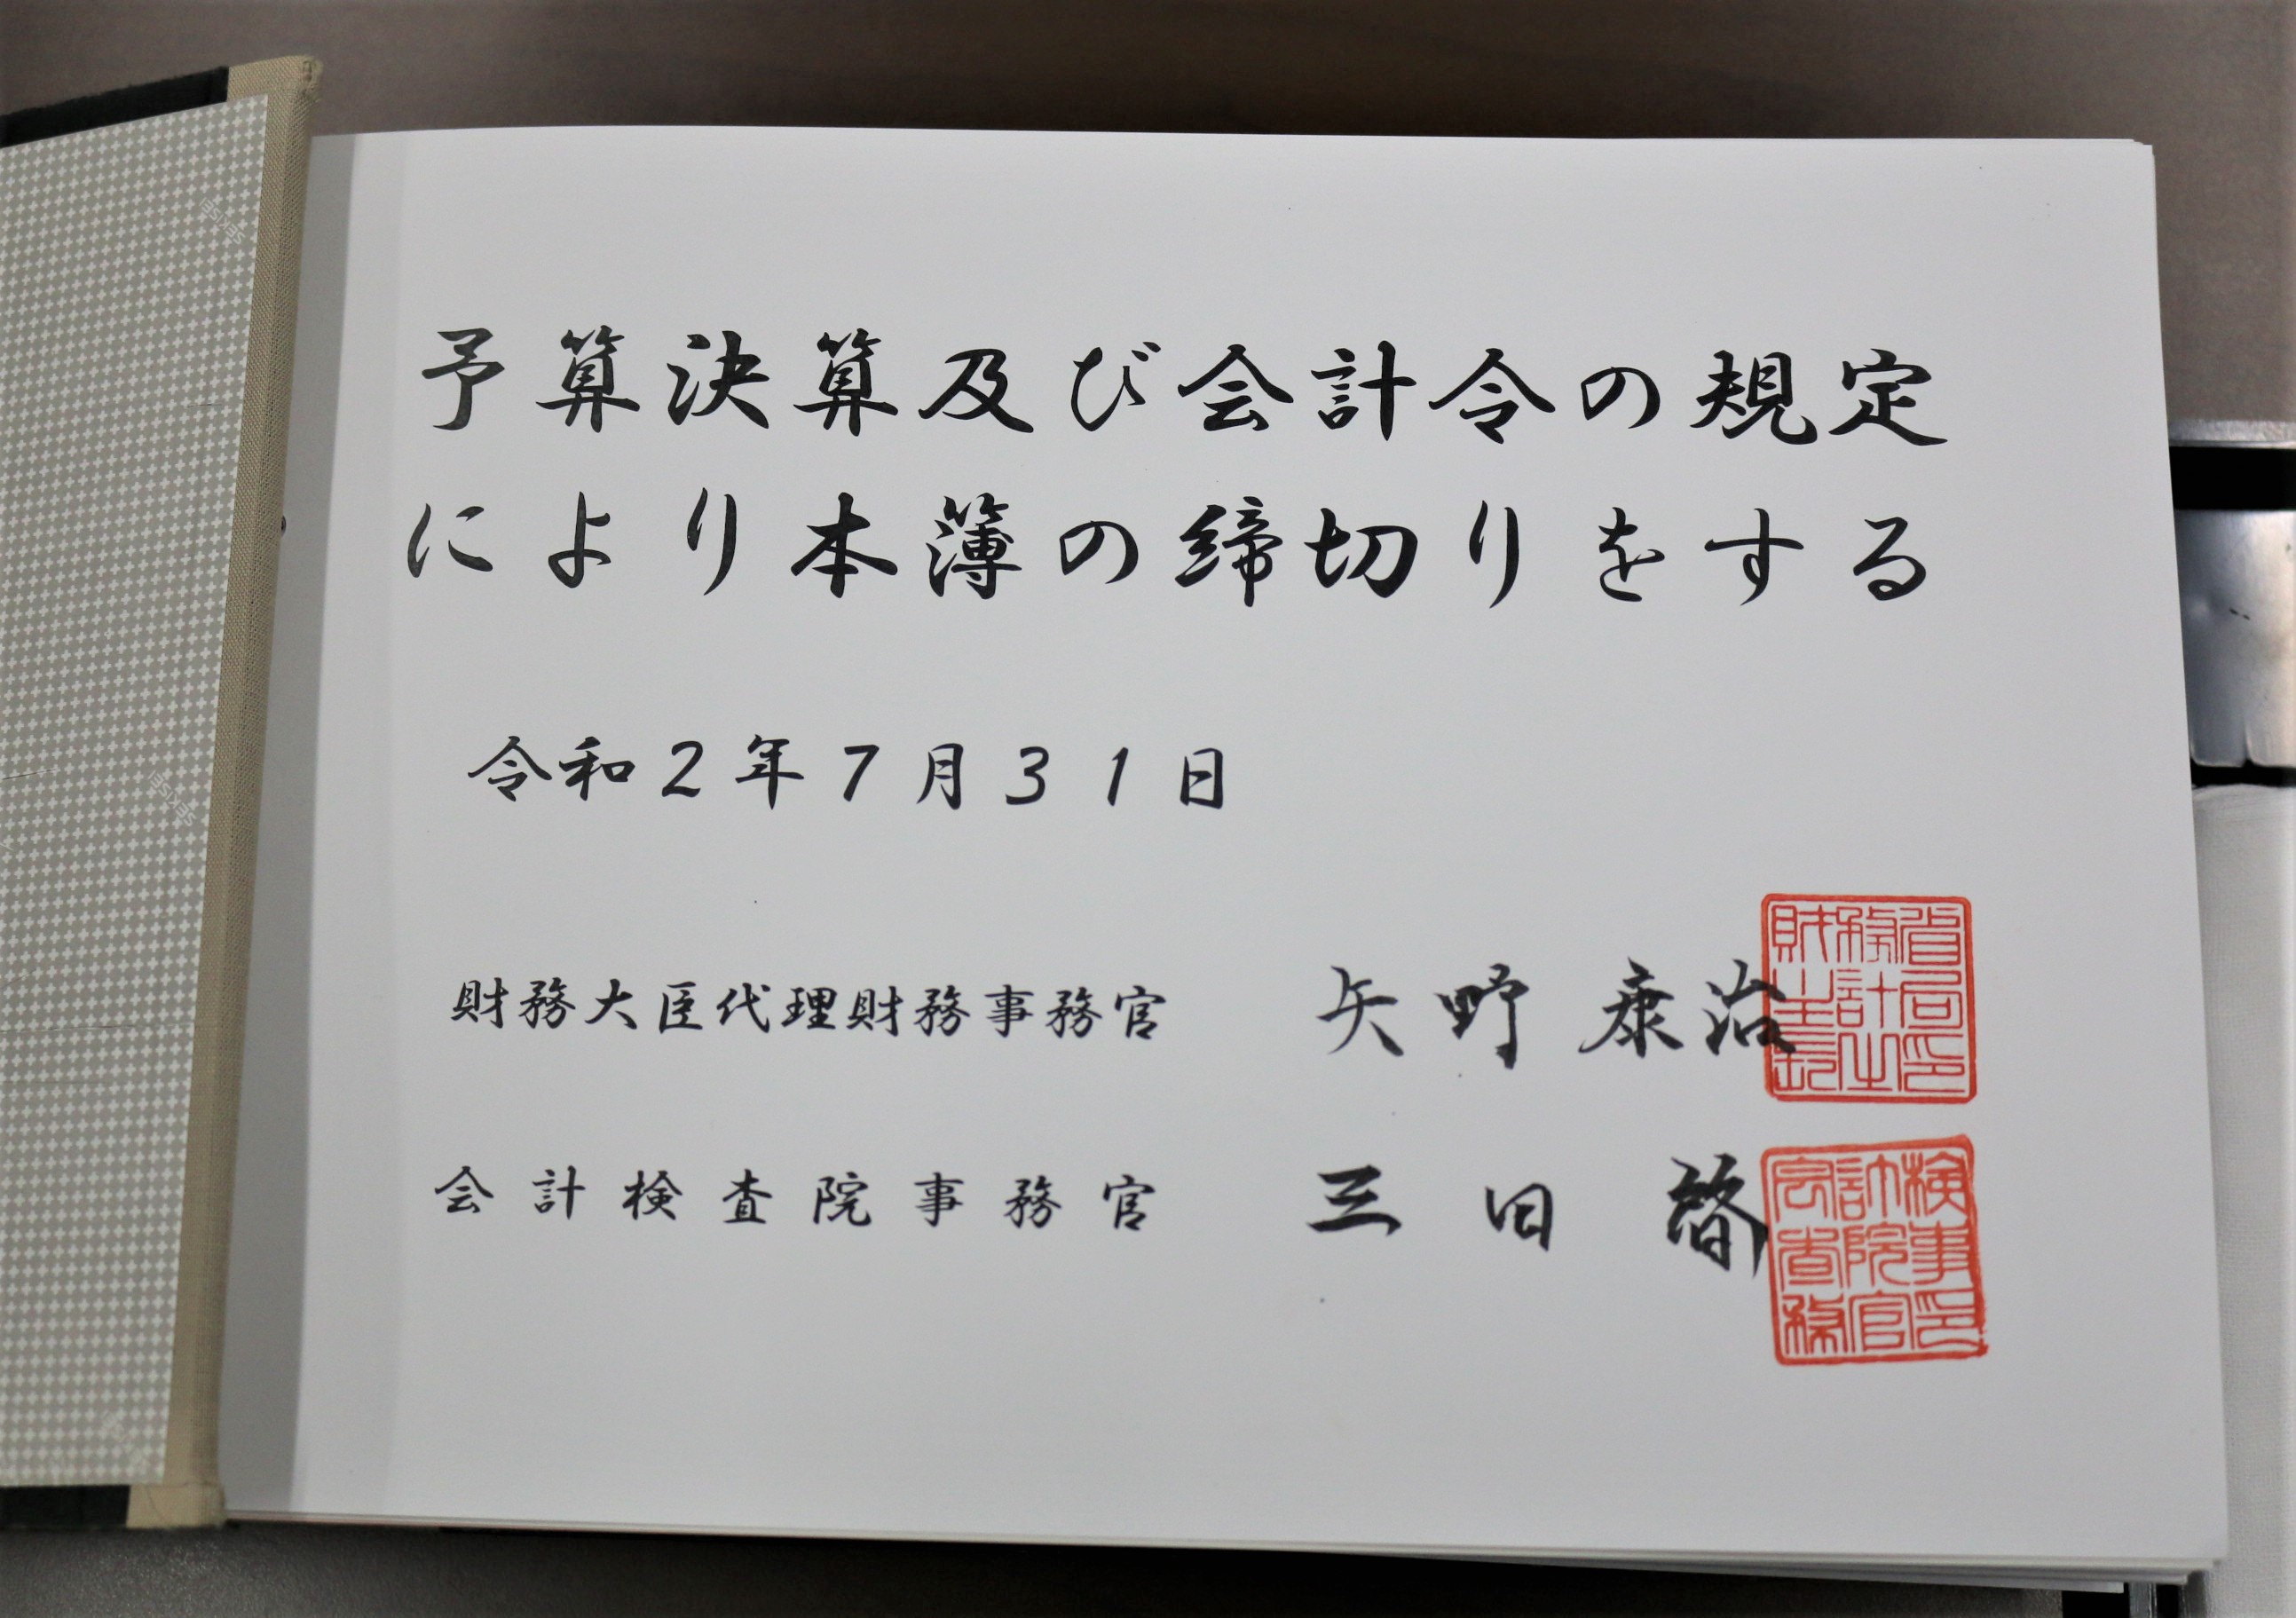 予算決算及び会計令の規定
により本簿の締切りをする
令和2年7月31日
財務大臣代理財務事務官 矢野 康治
会計検査院事務官 三田 啓
財務省
主計局
長之印
会計検
査院事
務官印
SEKISEI
SEKISEI